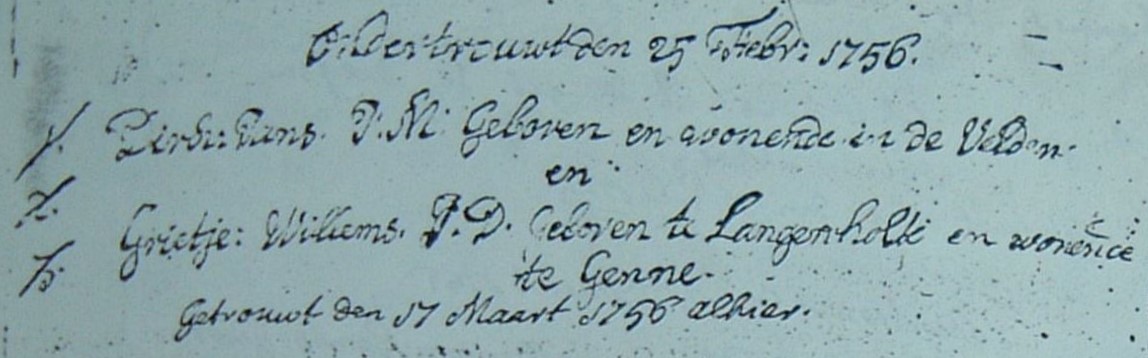 Ondertrouwt den 25 Febr: 1756.
1. Hans. J: M: Geboren en wonende in de Velden.
en
2. Grietje: Willems. J. D. Geboren te Langenholte en wonende
3. te Genne.
Getrouwt den 17 Maart 1756 alhier.